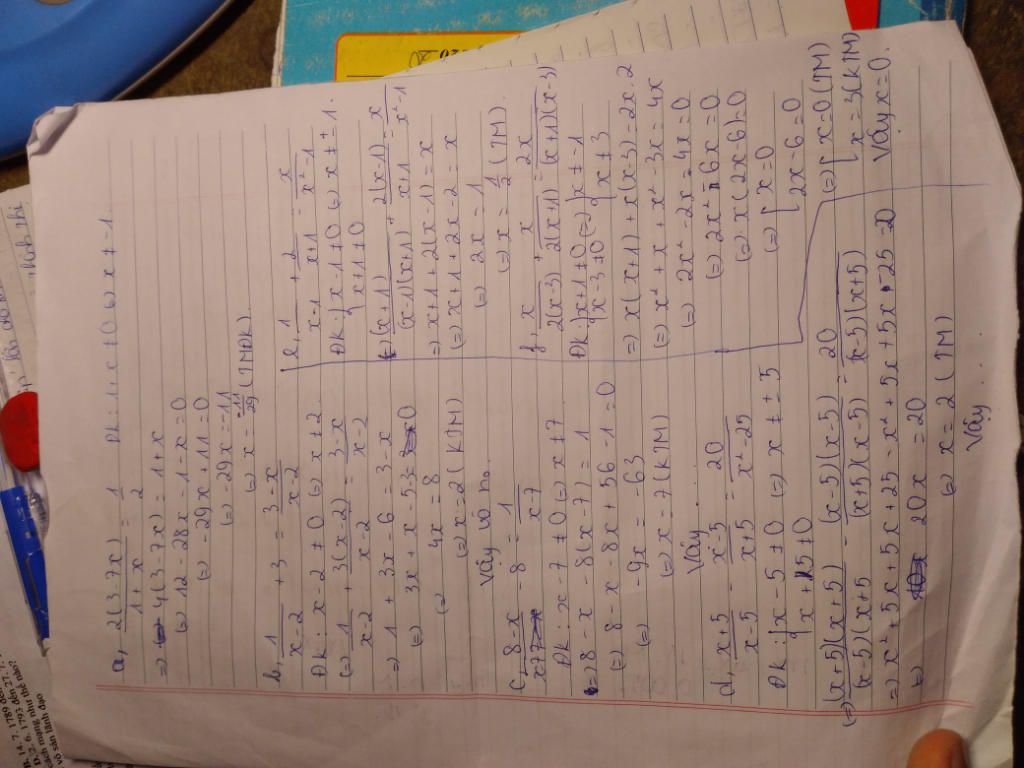 a, 2(3-7x)/(1+x) = 1/2 ĐK: 1+x ≠ 0 (=) x ≠ -1
=> 4(3-7x) = 1+x
(=) 12-28x-1-x=0
(=) -29x+11=0
(=) -29x=-11
(=) x = -11/-29 (TMĐK).
b, 1/(x-2) + 3 = (3-x)/(x-2)
ĐK: x-2 ≠ 0 (=) x ≠ 2
(=) 1/(x-2) + 3(x-2)/(x-2) = (3-x)/(x-2)
=) 1 + 3x-6 = 3-x
(=) 3x+x-5-3=0
(=) 4x=8
(=) x=2 (KTM)
Vậy vô no.
c, (8-x)/(x-7) - 8 = 1/(x-7)
ĐK: x-7 ≠ 0 (=) x ≠ 7
=) 8-x-8(x-7)=1
(=) 8-x-8x+56-1=0
(=) -9x=-63
(=) x=7 (KTM)
Vậy ...
d, (x+5)/(x-5) - (x-5)/(x+5) = 20/(x²-25)
ĐK: { x-5 ≠ 0 (=) x ≠ ± 5
x+5 ≠ 0
(=) (x+5)(x+5)/(x-5)(x+5) - (x-5)(x-5)/(x+5)(x-5) = 20/(x-5)(x+5)
=) x²+5x+5x+25-x²+5x+5x-25=20
(=) 20x=20
(=) x=2 (TM)
Vậy ...
e, 1/(x-1) + 2/(x+1) = x/(x²-1)
ĐK { x-1 ≠ 0 (=) x ≠ ± 1.
x+1 ≠ 0
(=) (x+1)/(x-1)(x+1) + 2(x-1)/(x+1) = x/(x²-1)
=) x+1+2(x-1)=x
(=) x+1+2x-2=x
(=) 2x=1
(=) x=1/2 (TM).
f, x/2(x-3) + x/2(x+1) = 2x/(x+1)(x-3)
ĐK: { x+1 ≠ 0 (=) { x ≠ -1
x-3 ≠ 0 x ≠ 3
=) x(x+1)+x(x-3)=2x.2
(=) x²+x+x²-3x=4x
(=) 2x²-2x-4x=0
(=) 2x²-6x=0
(=) x(2x-6)=0
(=) [ x=0
2x-6=0
(=) [ x=0 (TM)
x=3 (KTM)
Vậy x=0.